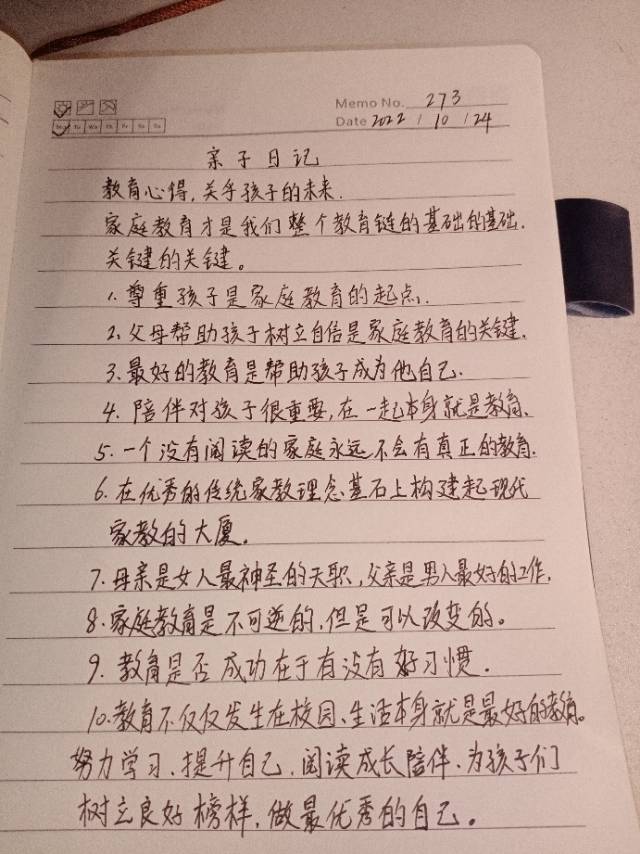 Memo No. 273
Mo Tu We Th Fr Sa Su
Date 2022 / 10 / 24
亲子日记
教育心得,关乎孩子的未来.
家庭教育才是我们整个教育链的基础的基础.
关键的关键。
1.尊重孩子是家庭教育的起点.
2.父母帮助孩子树立自信是家庭教育的关键.
3.最好的教育是帮助孩子成为他自己.
4.陪伴对孩子很重要,在一起本身就是教育.
5.一个没有阅读的家庭永远不会有真正的教育.
6.在优秀的传统家教理念基石上构建起现代
家教的大厦.
7.母亲是女人最神圣的天职,父亲是男人最好的工作.
8.家庭教育是不可逆的,但是可以改变的。
9.教育是否成功在于有没有好习惯.
10.教育不仅仅发生在校园、生活本身就是最好的教育。
努力学习、提升自己、阅读成长陪伴、为孩子们
树立良好榜样,做最优秀的自己。